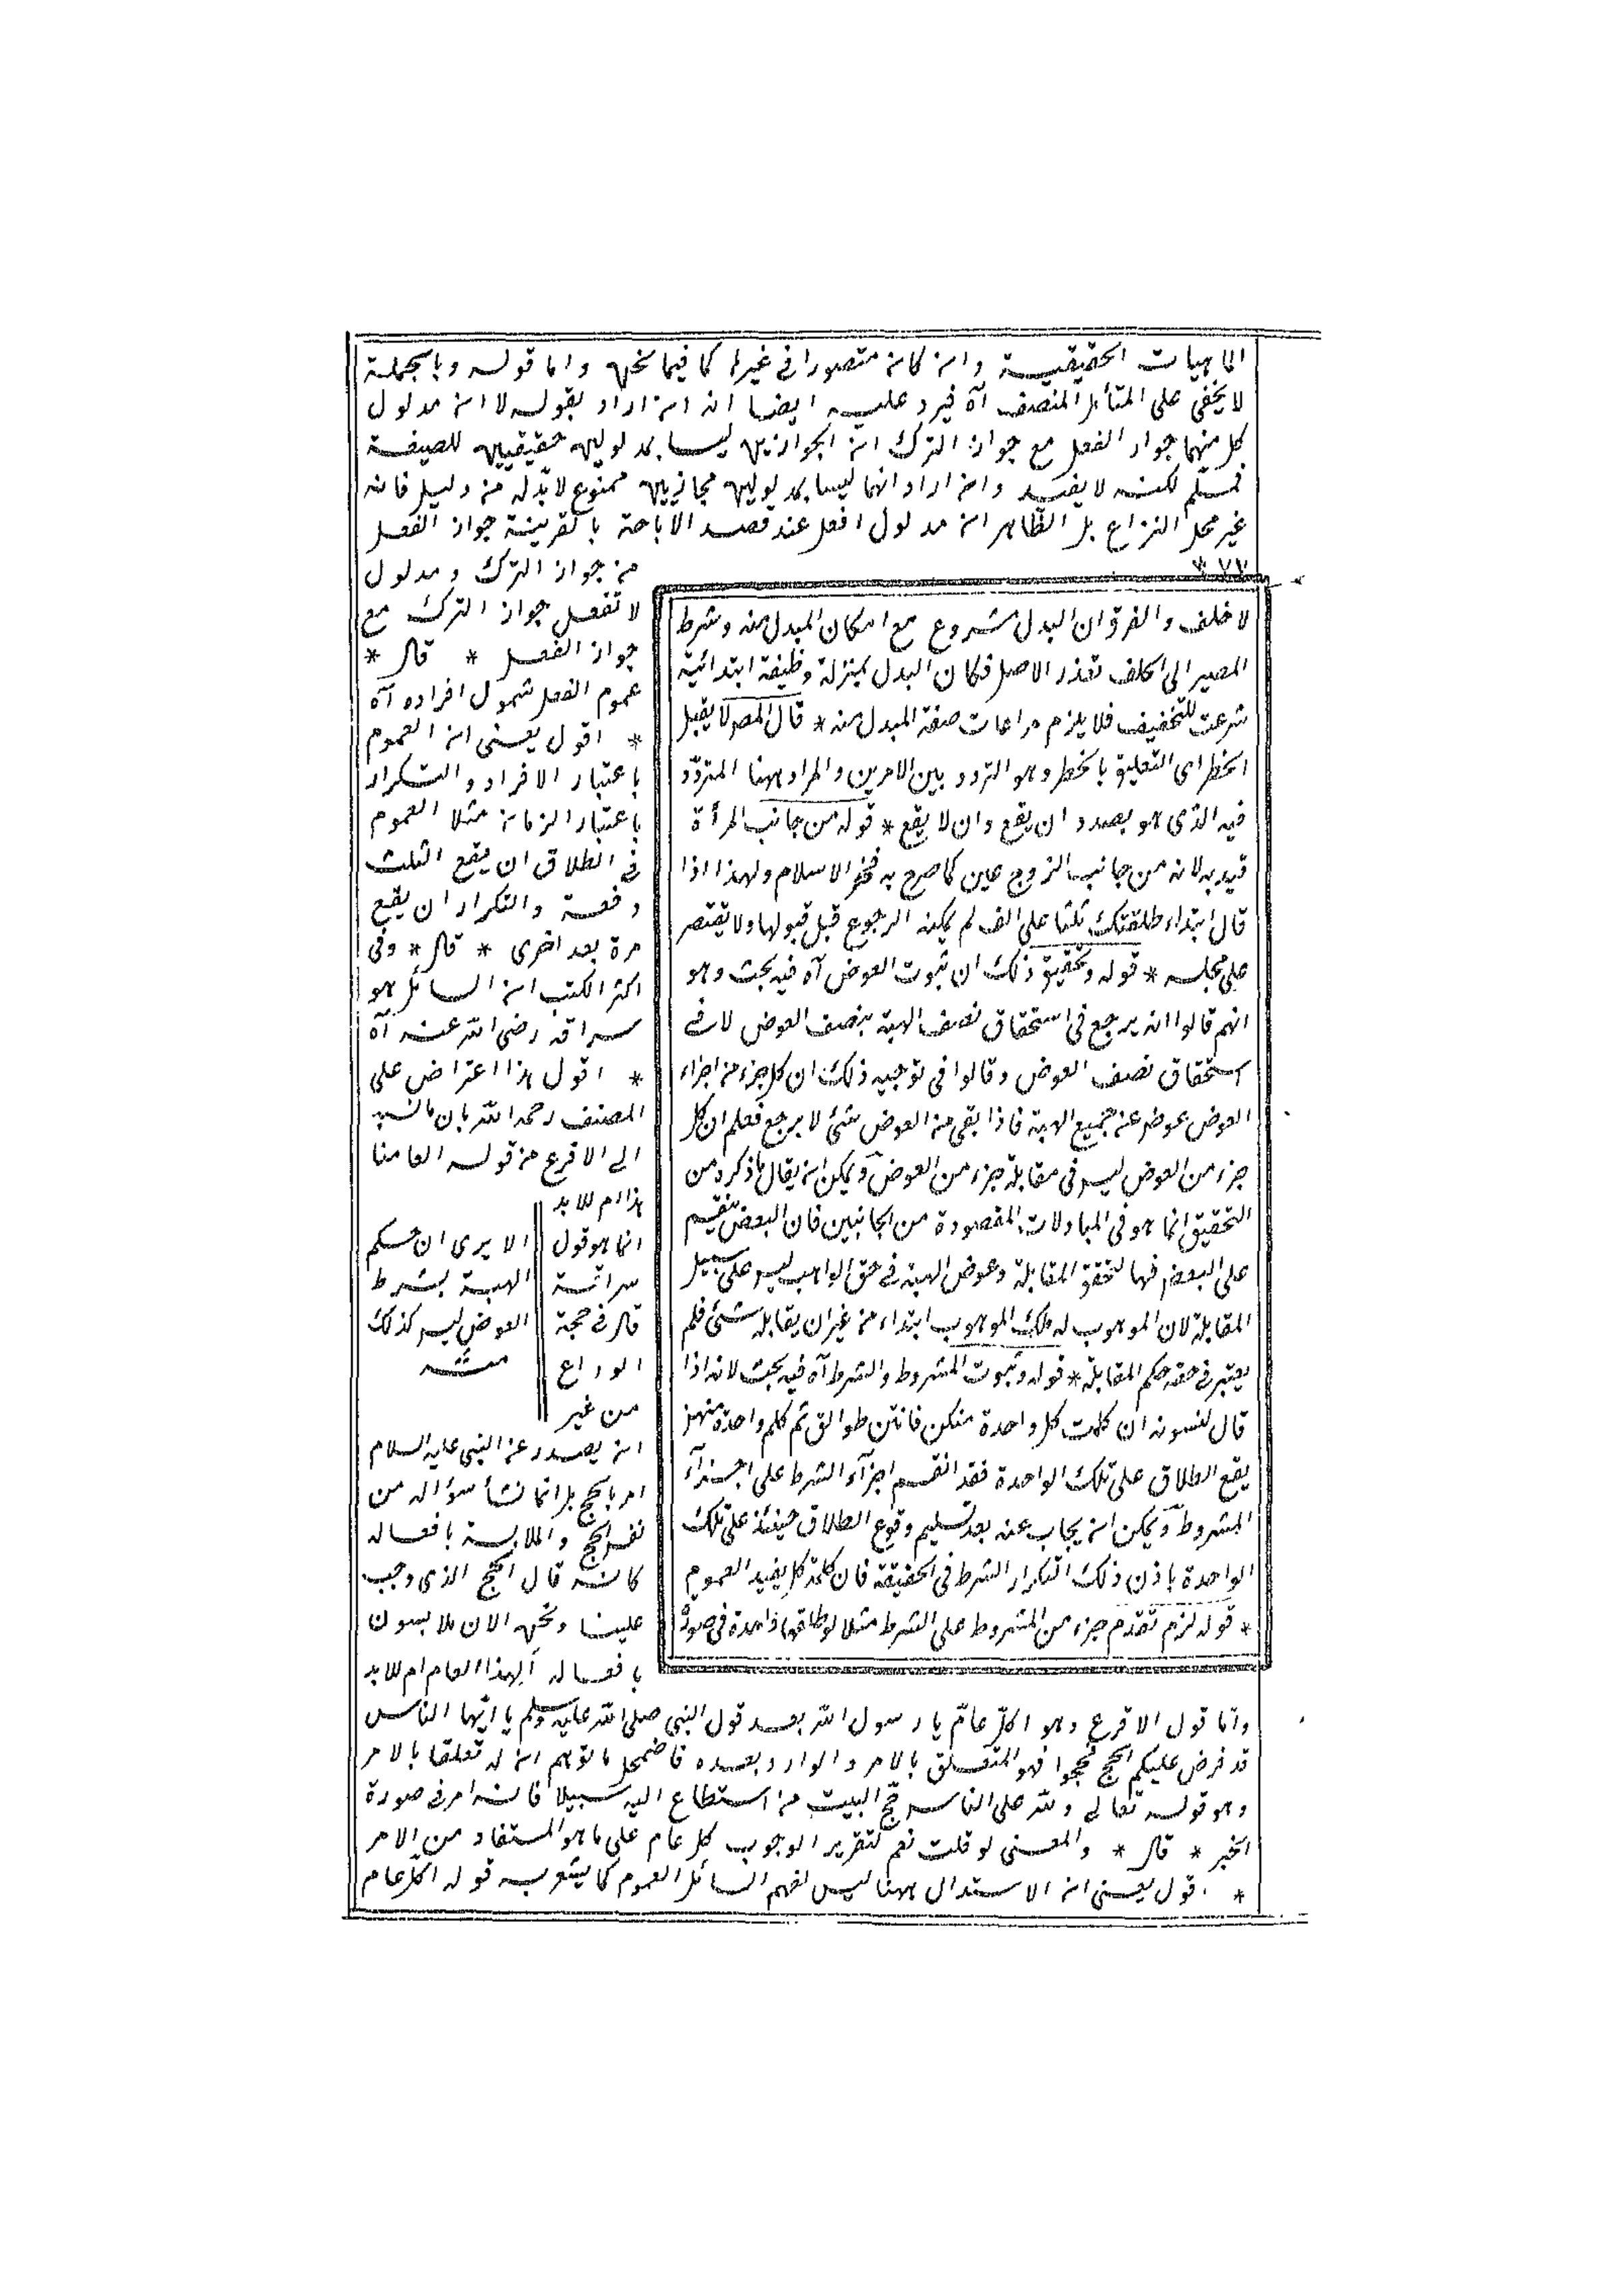 الماهيات الحقيقية وان كان متصورا في غيرها كما فيما نحن واما قوله وبالجملة
لا يخفى على المتأمل المنصف آه فيرد عليه ايضا انه ان اراد بقوله لا ان مدلول
كل منهما جواز الفعل مع جواز الترك ان الجوازين ليسا بمدلولين حقيقيين للصيغة
فمسلم لكنه لا يفيد وان اراد انهما ليسا بمدلولين مجازيين ممنوع لا بد له من دليل فانه
غير محل النزاع بل الظاهر ان مدلول افعل عند قصد الاباحة بالقرينة جواز الفعل
من جواز الترك ومدلول
لا تفعل جواز الترك مع
جواز الفعل * قال *
عموم الفعل شمول افراده آه
* اقول يعنى ان العموم
باعتبار الافراد والتكرار
باعتبار الزمان مثلا العموم
في الطلاق ان يقع الثلث
دفعة والتكرار ان يقع
مرة بعد اخرى * قال * وفى
اكثر الكتب ان السائل هو
سراقه رضى الله عنه آه
* اقول هذا اعتراض على
المصنف رحمه الله بان ما نسبه
الى الاقرع من قوله العامنا
هذا ام للابد
انما هو قول
سراقة
قال في حجة
الوداع
من غير
ان يصدر عن النبي عليه السلام
امر بالحج بل انما نشأ سؤاله من
نفس الحج والملابسة بافعاله
كانه قال الحج الذى وجب
علينا ونحن الان ملابسون
بافعاله ألهذا العام ام للابد
واما قول الاقرع وهو اكل عام يا رسول الله بعد قول النبي صلى الله عليه وسلم يا ايها الناس
قد فرض عليكم الحج فحجوا فهو المتعلق بالامر والوارد بعده فاضمحل ما توهم ان له تعلقا بالامر
وهو قوله تعالى ولله على الناس حج البيت من استطاع اليه سبيلا فانه امر في صورة
الخبر * قال * والمعنى لو قلت نعم لتقرير الوجوب كل عام على ما هو المستفاد من الامر
* اقول يعنى ان الاستدلال ههنا ليس لفهم السائل العموم كما يشعر به قوله اكل عام
الا يرى ان حكم
الهبة بشرط
العوض ليس كذلك
منه
٧٧
لا خلف والفرق ان البدل مشروع مع امكان المبدل منه وشرط
المصير الى الخلف تعذر الاصل فكان البدل بمنزلة وظيفة ابتدائية
شرعت للتخفيف فلا يلزم مراعات صفة المبدل منه * قال المص لا يقبل
الخطر اى التعليق بالخطر وهو التردد بين الامرين والمراد ههنا المتردد
فيه الذى هو بصدد ان يقع وان لا يقع * قوله من جانب المرأة
قيد به لانه من جانب الزوج يمين كما صرح به فخر الاسلام ولهذا اذا
قال ابتداء طلقتك ثلثا على الف لم يمكنه الرجوع قبل قبولها ولا يقتصر
على مجلسه * قوله وتحقيق ذلك ان ثبوت العوض آه فيه بحث وهو
انهم قالوا انه يرجع في استحقاق نصف الهبة بنصف العوض لا في
استحقاق نصف العوض وقالوا في توجيه ذلك ان كل جزء من اجزاء
العوض عوض عن جميع الهبة فاذا بقى من العوض شئ لا يرجع فعلم ان كل
جزء من العوض ليس في مقابلة جزء من العوض ويمكن ان يقال ما ذكره من
التحقيق انما هو في المبادلات المقصودة من الجانبين فان البعض ينقسم
على البعض فيها لتحقق المقابلة وعوض الهبة في حق الواهب ليس على سبيل
المقابلة لان الموهوب له ملك الموهوب ابتداء من غير ان يقابله شئ فلم
يعتبر في حقه حكم المقابلة * قوله وثبوت المشروط والشرط آه فيه بحث لانه اذا
قال لنسوته ان كلمت كل واحدة منكن فانتن طوالق ثم كلم واحدة منهن
يقع الطلاق على تلك الواحدة فقد انقسم اجزآء الشرط على اجزآء
المشروط ويمكن ان يجاب عنه بعد تسليم وقوع الطلاق حينئذ على تلك
الواحدة بان ذلك لتكرار الشرط في الحقيقة فان كلمة كل يفيد العموم
* قوله لزم تقدم جزء من المشروط على الشرط مثلا لو طلقها واحدة في صورة